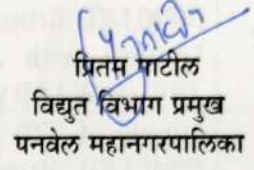 प्रितम पाटील
विद्युत विभाग प्रमुख
पनवेल महानगरपालिका